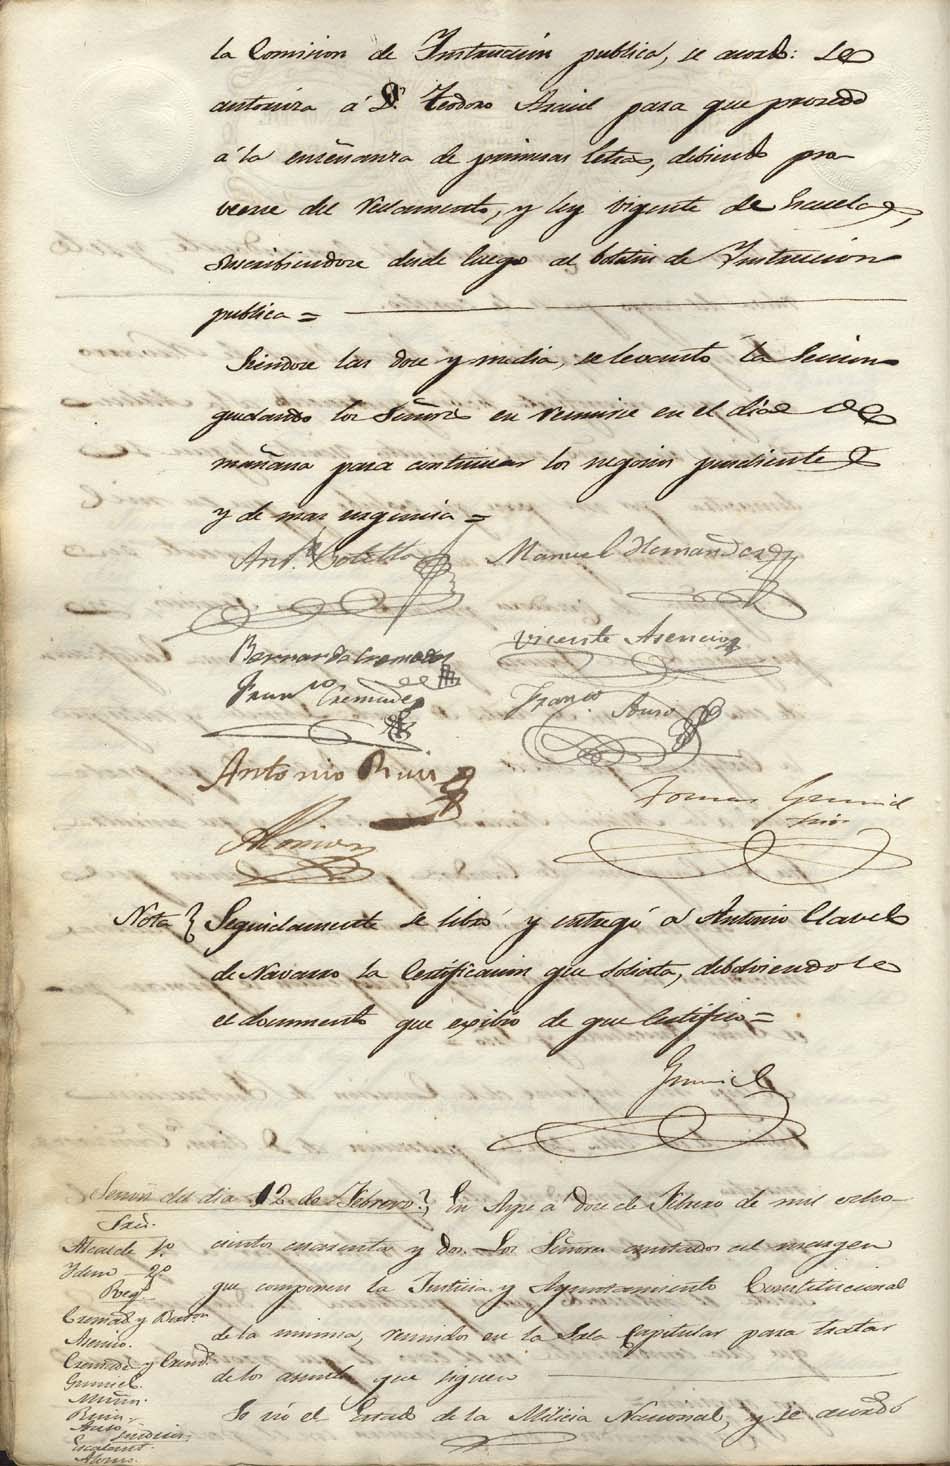 la Comision de Instruccion publica, se acordó: Se
autoriza á Dn. Teodoro para que proceda
á la enseñanza de primeras letras, debiendo pro-
veerse del Reglamento, y ley vigente de Escuelas,
suscribiendose desde luego al boletin de Instruccion
publica =
Siendose las doce y media, se levantó la Sesion
quedando los Señores en reunirse en el dia de
mañana para continuar los negocios pendientes
y de mas urgencia =
Anto. Botella
Manuel Hernandez
Bernardo Cremades
Vicente Asencio
Franco Cremades
Franco. Aznar
Antonio Ruiz
Tomas Gumiel
srio
Alonso
Nota } Seguidamente se libró y entregó á Antonio Clavel
de Navarro la Certificacion que solicita, debolviendole
el documento que exibio de que Certifico =
Gumiel
Sesion del dia 12 de Febrero } En Aspe á doce de Febrero de mil ocho-
Sres.
Alcalde 1o.
Idem 2o.
Regs.
cientos cuarenta y dos. Los Señores anotados al margen
que componen la Justicia y Ayuntamiento Constitucional
de la misma, reunidos en la Sala Capitular para tratar
de los asuntos que siguen
Cremads. y
Asencio.
Cremades y
Gumiel.
Ruiz.
Escolano.
Alonso.
Se vió el Estado de la Milicia Nacional, y se acordó